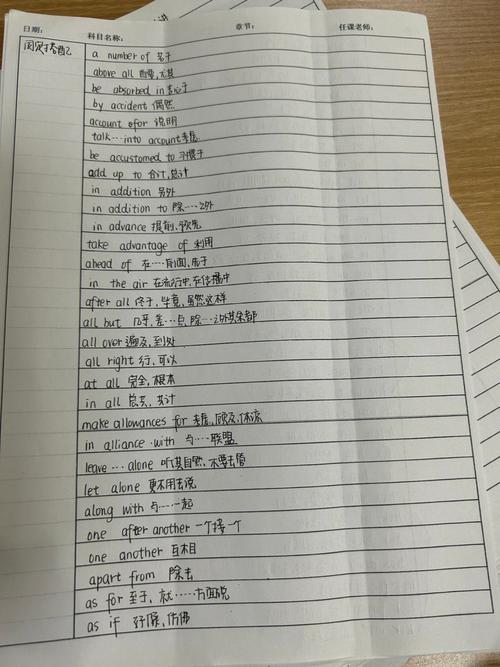 日期: 科目名称: 章节: 任课老师:
固定搭配
a number of 若干
above all 首要,尤其
be absorbed in 专心于
by accident 偶然
account for 说明
talk…into account 考虑
be accustomed to 习惯于
add up to 合计,总计
in addition 另外
in addition to 除…之外
in advance 提前,预先
take advantage of 利用
ahead of 在……前面,先于
in the air 在流行中,在传播中
after all 终于,毕竟,虽然这样
all but 几乎,差…点,除…之外其余都
all over 遍及,到处
all right 行,可以
at all 完全,根本
in all 总共,共计
make allowances for 考虑,顾及,体谅
in alliance with 与……联盟
leave … alone 听其自然,不要去管
let alone 更不用去说
along with 与……一起
one after another 一个接一个
one another 互相
apart from 除去
as for 至于,就……方面说
as if 好像,仿佛